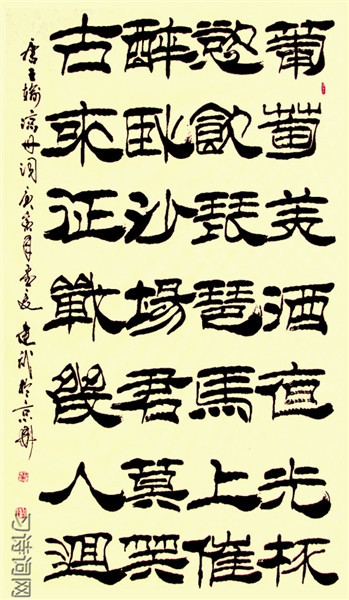 葡萄美酒夜光杯
慾飲琵琶馬上催
醉卧沙場君莫笑
古來征戰幾人迴
唐王翰凉州词庚寅月
习诗词网